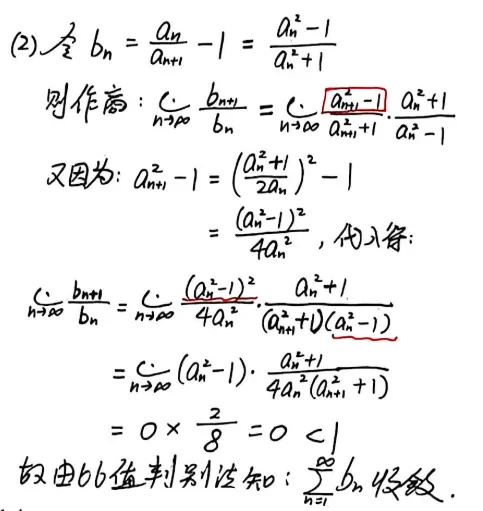 (2) 令 bₙ = aₙ/aₙ₊₁ − 1 = (aₙ² − 1)/(aₙ² + 1)
则作商: lim_{n→∞} bₙ₊₁/bₙ = lim_{n→∞} (aₙ₊₁² − 1)/(aₙ₊₁² + 1) · (aₙ² + 1)/(aₙ² − 1)
又因为: aₙ₊₁² − 1 = ((aₙ² + 1)/(2aₙ))² − 1
= (aₙ² − 1)²/(4aₙ²) , 代入得:
lim_{n→∞} bₙ₊₁/bₙ = lim_{n→∞} (aₙ² − 1)²/(4aₙ²) · (aₙ² + 1)/((aₙ₊₁² + 1)(aₙ² − 1))
= lim_{n→∞} (aₙ² − 1) · (aₙ² + 1)/(4aₙ²(aₙ₊₁² + 1))
= 0 × 2/8 = 0 < 1
故由比值判别法知: ∑_{n=1}^{∞} bₙ 收敛.